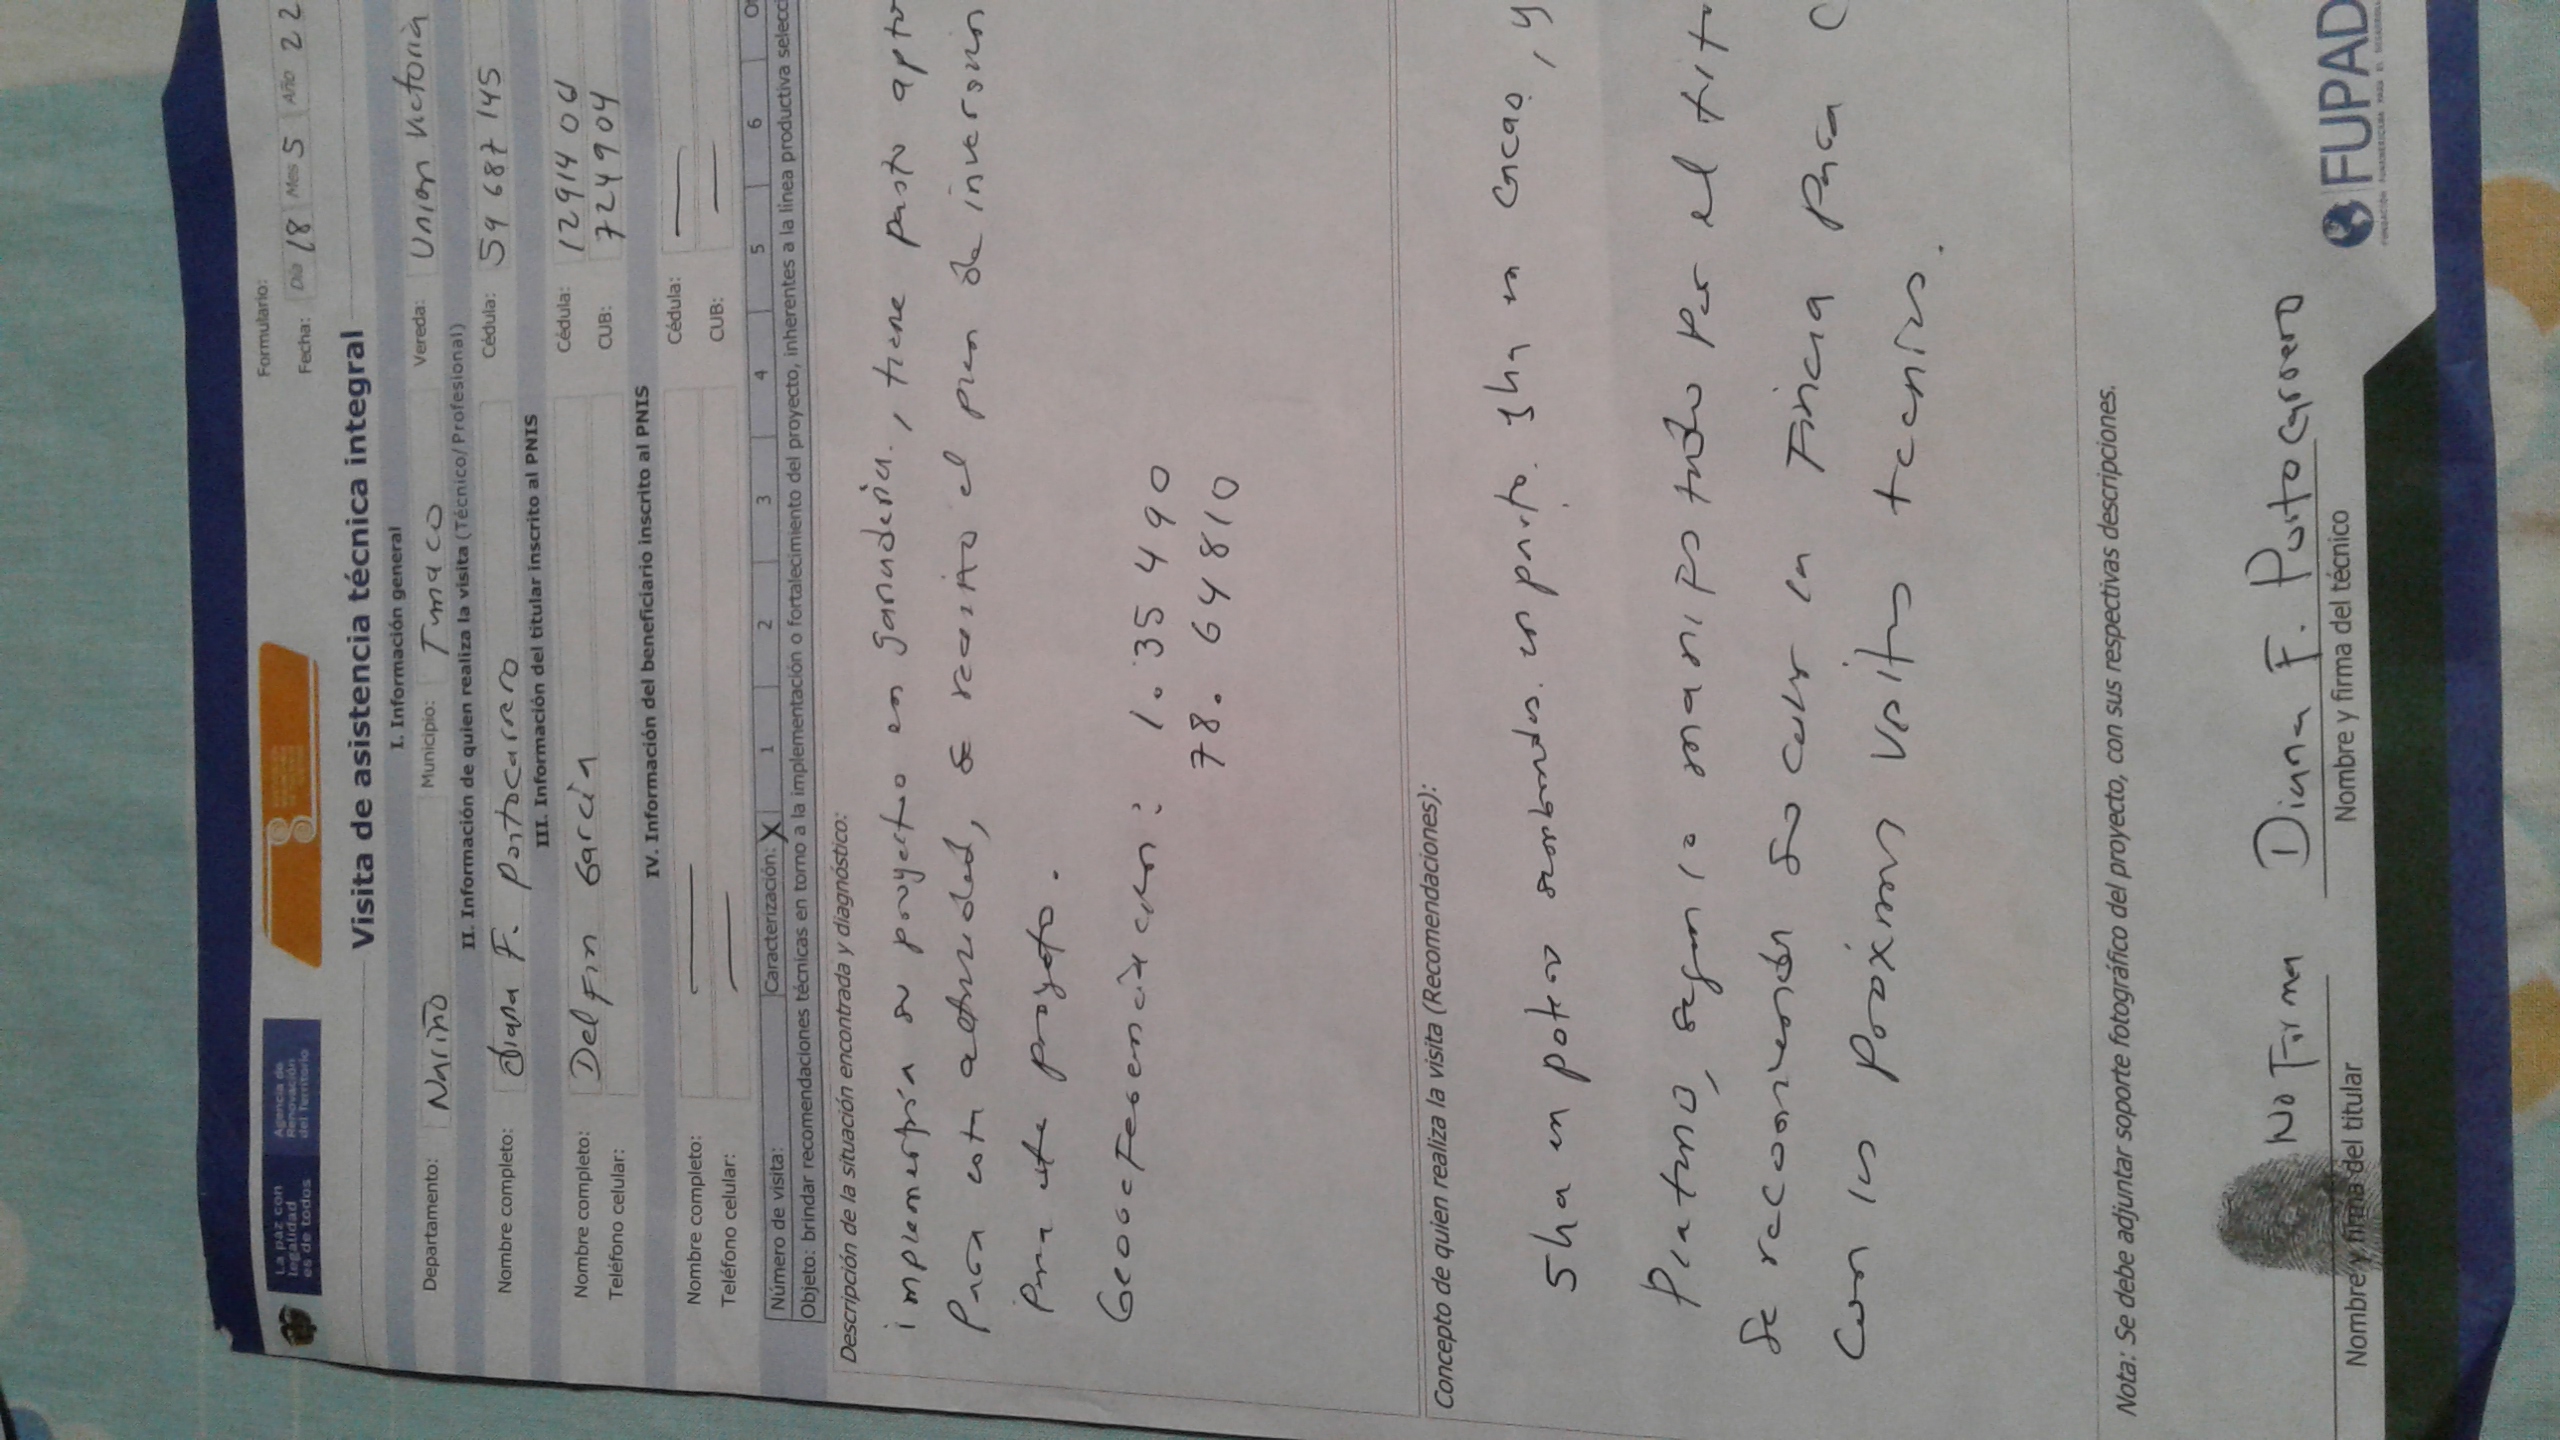 La paz con
legalidad
es de todos
Agencia de
Renovación
del Territorio
Formulario:
Fecha: Día 18 Mes 5 Año 22
Visita de asistencia técnica integral
I. Información general
Departamento: Nariño Municipio: Tumaco Vereda: Union Victoria
II. Información de quien realiza la visita (Técnico/Profesional)
Nombre completo: Diana F. Portocarrero Cédula: 59 687 145
III. Información del titular inscrito al PNIS
Nombre completo: Delfin Garcia Cédula: 12914 06
Teléfono celular: CUB: 7249 904
IV. Información del beneficiario inscrito al PNIS
Nombre completo: — Cédula: —
Teléfono celular: — CUB: —
Número de visita: Caracterización: X 1 2 3 4 5 6
Objeto: brindar recomendaciones técnicas en torno a la implementación o fortalecimiento del proyecto, inherentes a la línea productiva selecc
Descripción de la situación encontrada y diagnóstico:
su proyecto en ganaderia, tiene pasto apto
para esta actividad, se el plan de inversion
para este proyecto.
1.35490
78.64810
Concepto de quien realiza la visita (Recomendaciones):
5ha en potrer en pasto. 3ha en cacao, y
Platano, segun lo manifestado por el tit
Se recomienda la Finca para
Con las próximas Visitas tecnicas.
Nota: Se debe adjuntar soporte fotográfico del proyecto, con sus respectivas descripciones.
No Firma Diana F. Portocarrero
Nombre y firma del titular Nombre y firma del técnico
FUPAD